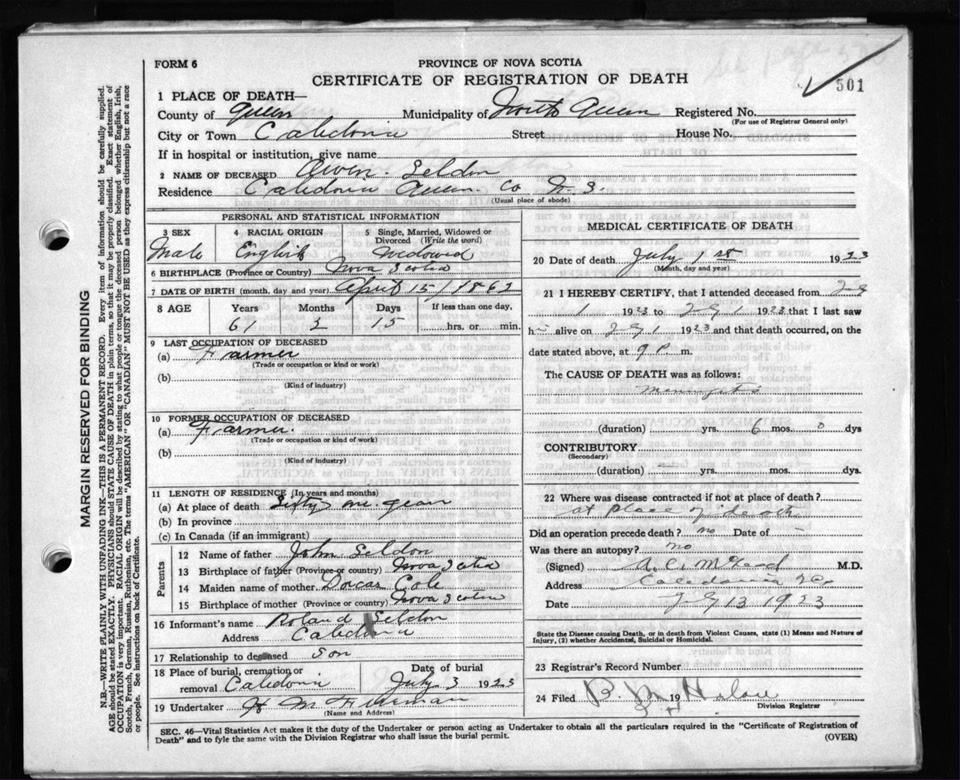 FORM 6
PROVINCE OF NOVA SCOTIA
CERTIFICATE OF REGISTRATION OF DEATH
501
1 PLACE OF DEATH—
County of Queens Municipality of North Queen Registered No.
(For use of Registrar General only)
City or Town Caledonia Street House No.
If in hospital or institution, give name
2 NAME OF DECEASED Owen Seldon
Residence Caledonia Queen Co N. S.
(Usual place of abode)
PERSONAL AND STATISTICAL INFORMATION
3 SEX 4 RACIAL ORIGIN 5 Single, Married, Widowed or Divorced (Write the word)
Male English Widowed
6 BIRTHPLACE (Province or Country) Nova Scotia
7 DATE OF BIRTH (month, day and year) April 15/1862
8 AGE Years Months Days If less than one day,
61 2 15 hrs. or min.
9 LAST OCCUPATION OF DECEASED
(a) Farmer
(Trade or occupation or kind or work)
(b)
(Kind of industry)
10 FORMER OCCUPATION OF DECEASED
(a) Farmer.
(Trade or occupation or kind of work)
(b)
(Kind of industry)
11 LENGTH OF RESIDENCE (In years and months)
(a) At place of death Sixty one year
(b) In province
(c) In Canada (if an immigrant)
Parents
12 Name of father John Seldon
13 Birthplace of father (Province or country) Nova Scotia
14 Maiden name of mother Dorcas Cole
15 Birthplace of mother (Province or country) Nova Scotia
16 Informant's name Roland Seldon
Address Caledonia
17 Relationship to deceased Son
18 Place of burial, cremation or removal Caledonia Date of burial July 3 1923
19 Undertaker H M Freeman
(Name and Address)
MEDICAL CERTIFICATE OF DEATH
20 Date of death July 1st 1923
(Month, day and year)
21 I HEREBY CERTIFY, that I attended deceased from
1 1923 to 1 1923 that I last saw
h alive on 1 1923 and that death occurred, on
date stated above, at 9 P. m.
The CAUSE OF DEATH was as follows:
(duration) yrs. 6 mos. 0 dys
CONTRIBUTORY
(Secondary)
(duration) yrs. mos. dys.
22 Where was disease contracted if not at place of death?
at Place of death
Did an operation precede death? no Date of
Was there an autopsy? no
(Signed) M.D.
Address Caledonia
Date 13 1923
State the Disease causing Death, or in death from Violent Causes, state (1) Means and Nature of Injury, (2) whether Accidental, Suicidal or Homicidal.
23 Registrar's Record Number
24 Filed 19
Division Registrar
SEC. 46—Vital Statistics Act makes it the duty of the Undertaker or person acting as Undertaker to obtain all the particulars required in the "Certificate of Registration of
Death" and to fyle the same with the Division Registrar who shall issue the burial permit. (OVER)
MARGIN RESERVED FOR BINDING
N.B.—WRITE PLAINLY, WITH UNFADING INK—THIS IS A PERMANENT RECORD. Every item of information should be carefully supplied.
AGE should be stated EXACTLY. PHYSICIANS should STATE CAUSE OF DEATH in plain terms, so that it may be properly classified. Exact statement of
OCCUPATION is very important. RACIAL ORIGIN will be described by stating to what people or tongue the deceased person belonged whether English, Irish,
Scotch, French, German, Russian, Ruthenian, etc. The terms "AMERICAN" OR "CANADIAN" MUST NOT BE USED as they express citizenship but not a race
or people. See instructions on back of Certificate.